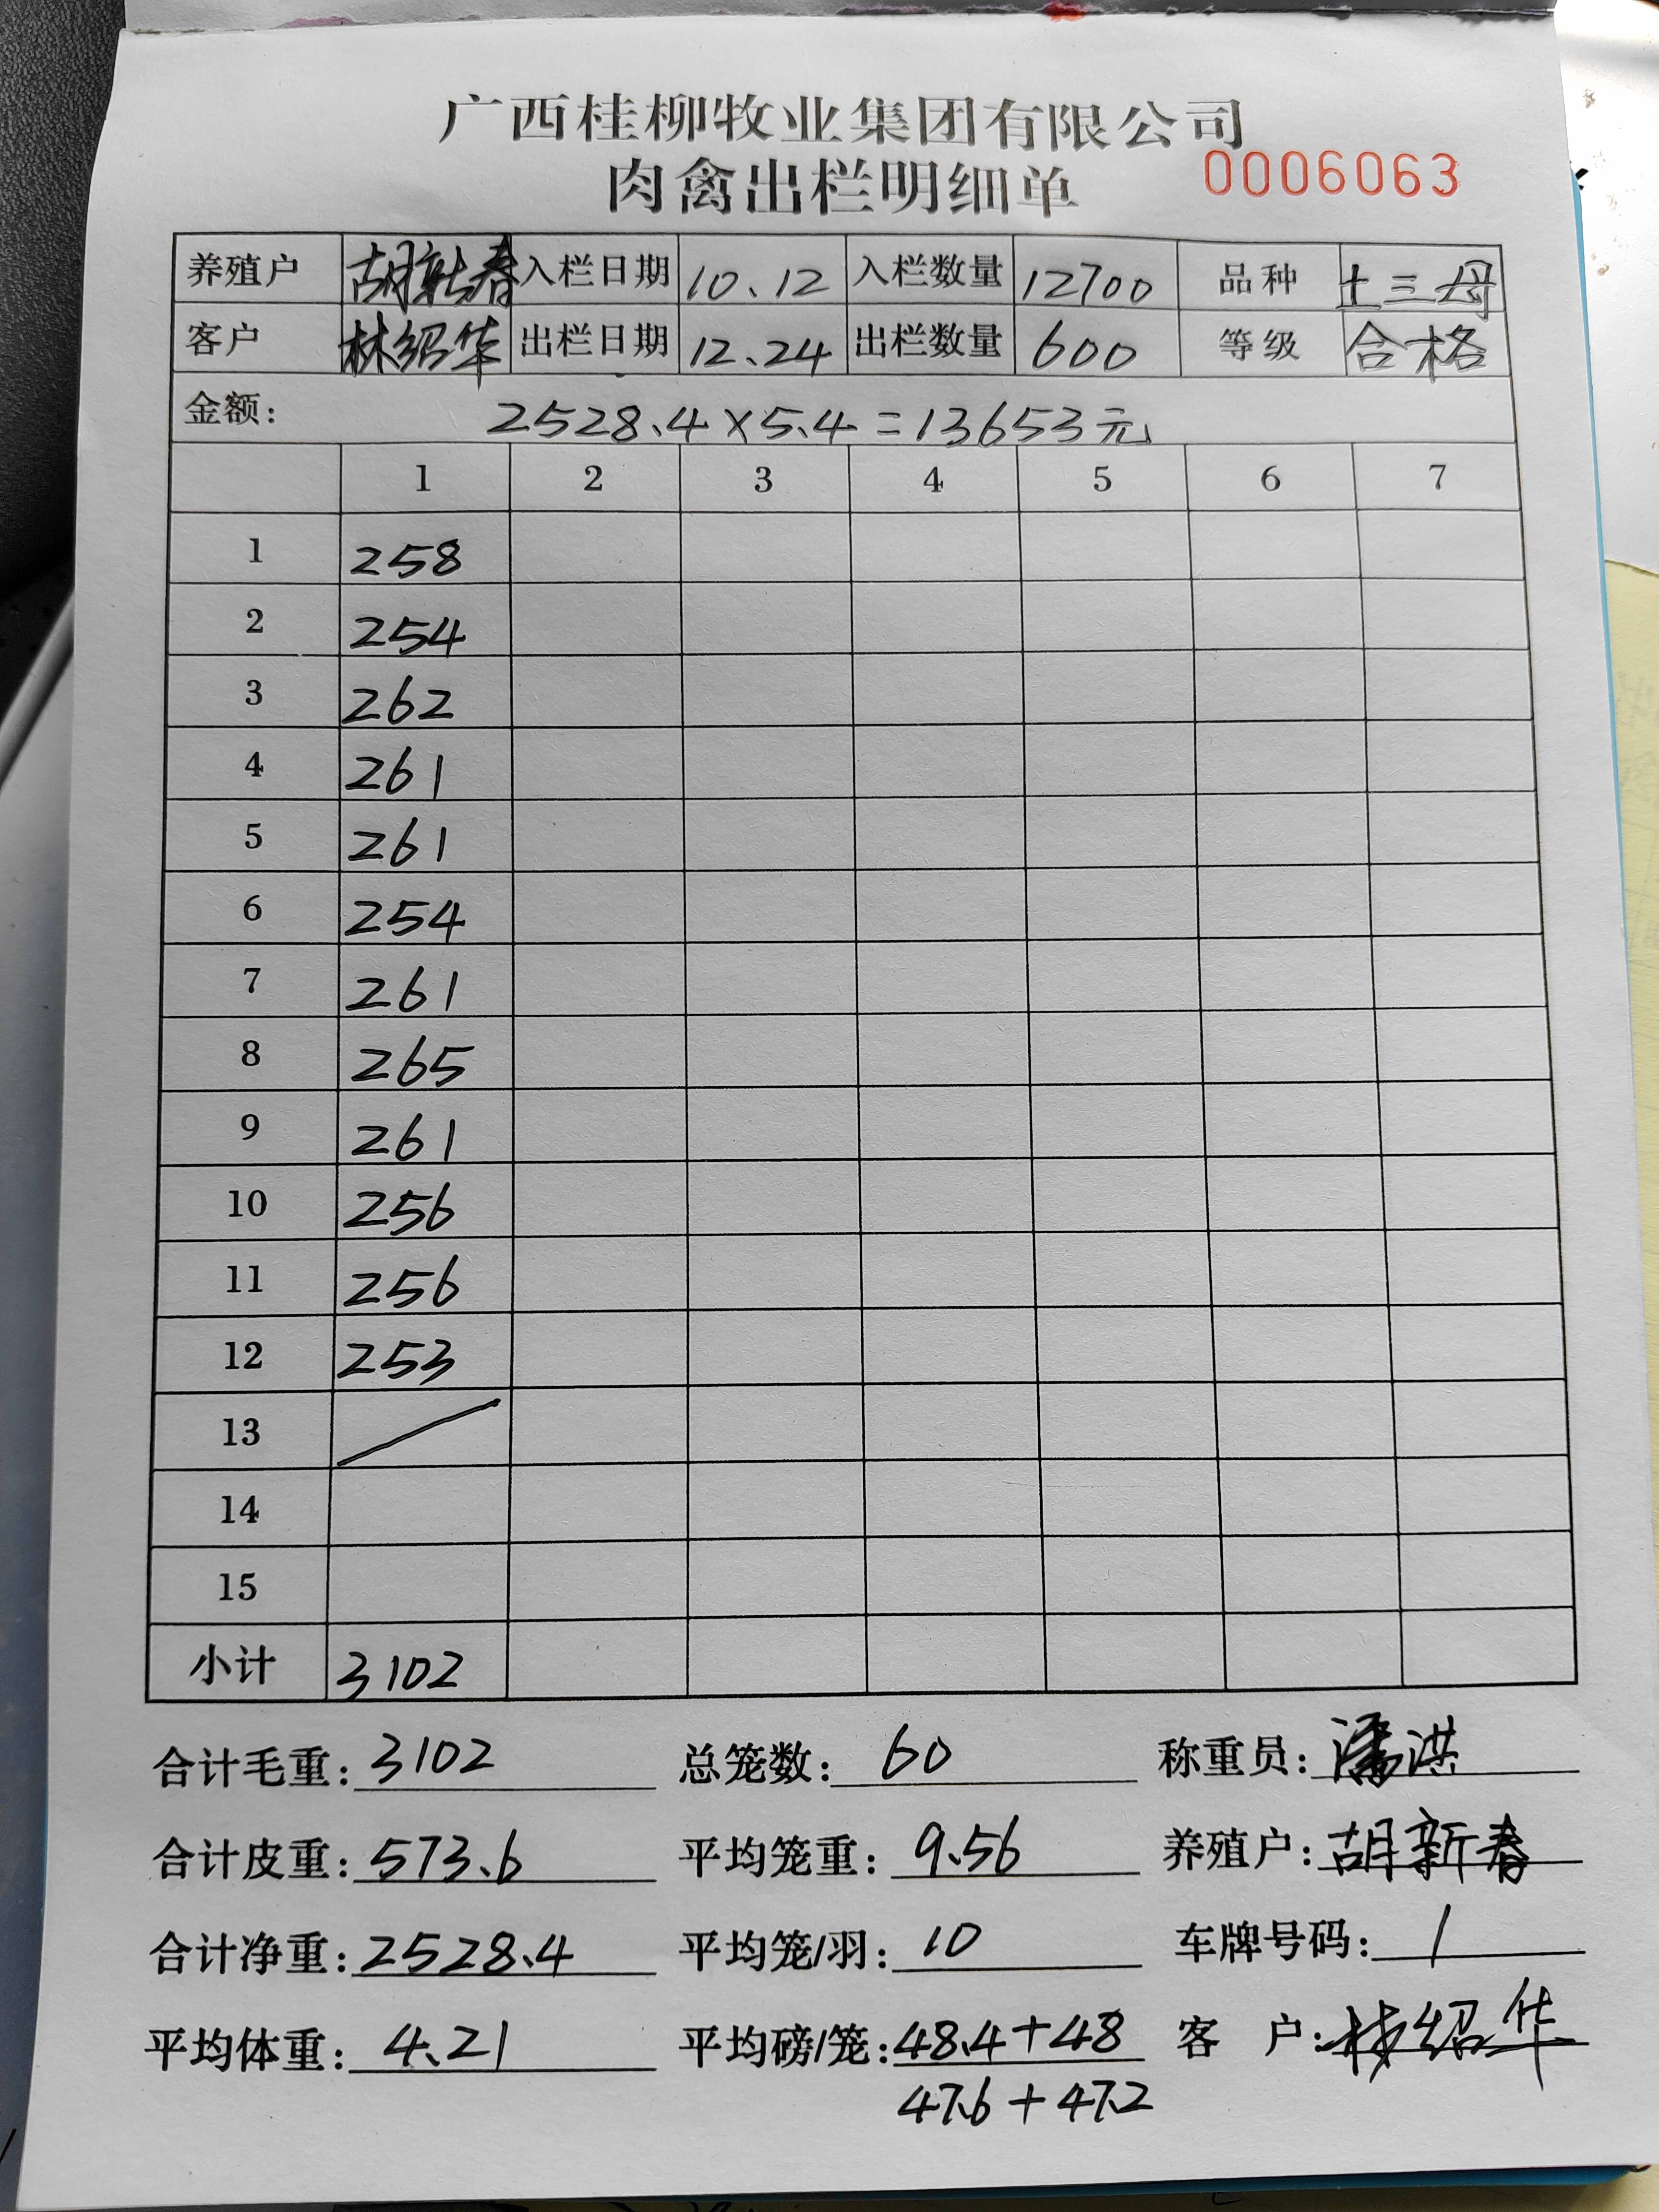 广西桂柳牧业集团有限公司
肉禽出栏明细单 0006063
养殖户 胡新春 入栏日期 10.12 入栏数量 12700 品种 土三母
客户 林绍华 出栏日期 12.24 出栏数量 600 等级 合格
金额: 2528.4×5.4=13653元
1 2 3 4 5 6 7
1 258
2 254
3 262
4 261
5 261
6 254
7 261
8 265
9 261
10 256
11 256
12 253
13
14
15
小计 3102
合计毛重: 3102 总笼数: 60 称重员: 潘洪
合计皮重: 573.6 平均笼重: 9.56 养殖户: 胡新春
合计净重: 2528.4 平均笼/羽: 10 车牌号码: 1
平均体重: 4.21 平均磅/笼: 48.4+48 客 户: 林绍华
47.6+47.2